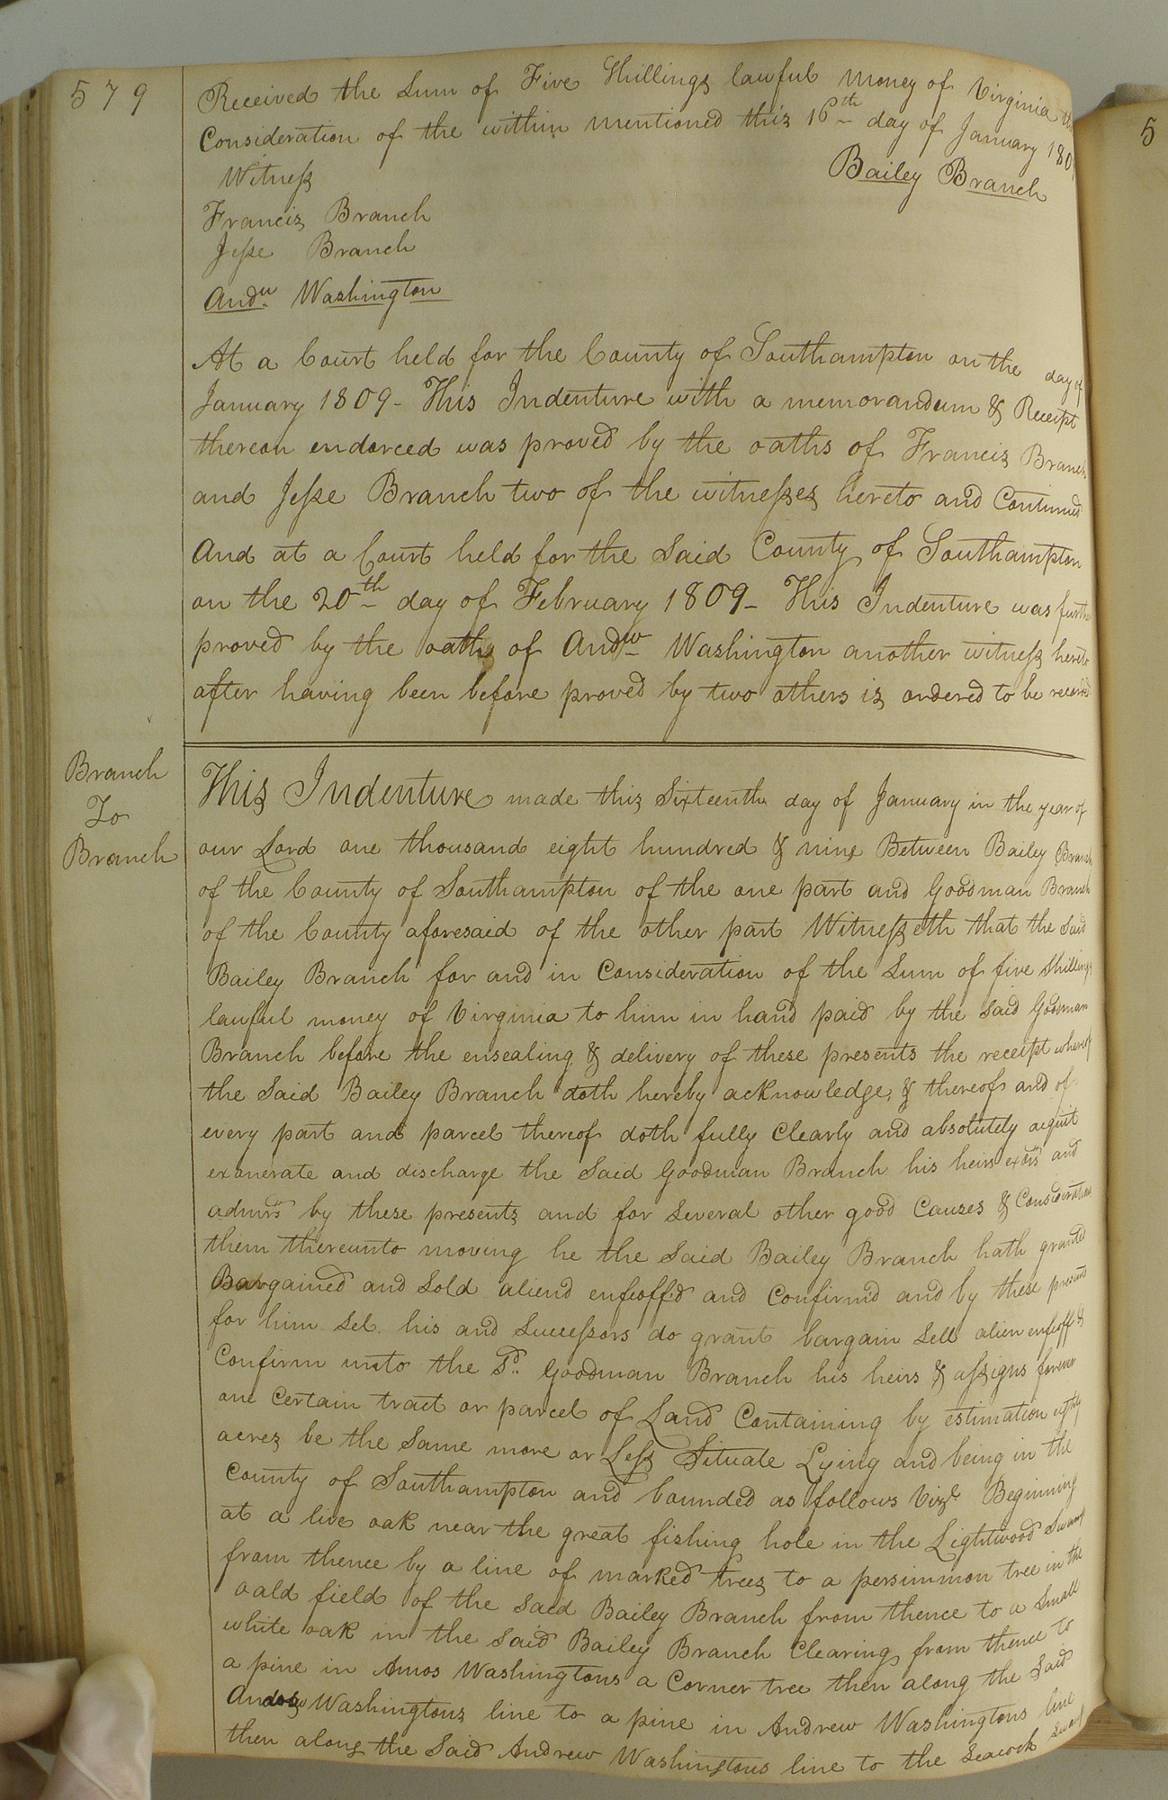 579
Received the Sum of Five Shillings lawful Money of Virginia the
Consideration of the within mentioned this 16th day of January 180
Bailey Branch
Witness
Francis Branch
Jesse Branch
Andw Washington
At a Court held for the County of Southampton on the day of
January 1809 - This Indenture with a memorandum & Receipt
thereon endorced was proved by the oaths of Francis Branch
and Jesse Branch two of the witnesses hereto and Continued
And at a Court held for the Said County of Southampton
on the 20th day of February 1809 - This Indenture was further
proved by the oath of Andw Washington another witness hereto
after having been before proved by two others is ordered to be recorded
Branch
To
Branch
This Indenture made this Sixteenth day of January in the year of
our Lord one thousand eight hundred & nine Between Bailey Branch
of the County of Southampton of the one part and Goodman Branch
of the County aforesaid of the other part Witnesseth that the Said
Bailey Branch for and in Consideration of the Sum of five Shillings
lawful money of Virginia to him in hand paid by the Said Goodman
Branch before the ensealing & delivery of these presents the receipt whereof
the Said Bailey Branch doth hereby acknowledge, & thereof and of
every part and parcel thereof doth fully Clearly and absolutely acquit
exonerate and discharge the Said Goodman Branch his heirs exors and
admrs by these presents and for Several other good Causes & Considerations
them thereunto moving he the Said Bailey Branch hath granted
Bargained and Sold aliend enfeoffd and Confirmd and by these presents
for him Sel. his and Successors do grant bargain Sell alien enfeoff &
Confirm unto the Sd. Goodman Branch his heirs & assigns forever
one Certain tract or parcel of Land Containing by estimation eighty
acres be the Same more or Less Situate Lying and being in the
County of Southampton and bounded as follows Vizt Beginning
at a live oak near the great fishing hole in the Lightwood Swamp
from thence by a line of marked trees to a persimmon tree in the
oald field of the Said Bailey Branch from thence to a Small
white oak in the Said Bailey Branch Clearing from thence to
a pine in Amos Washingtons a Corner tree then along the Said
Washingtons line to a pine in Andrew Washingtons line
then along the Said Andrew Washingtons line to the Seacock Swamp
5